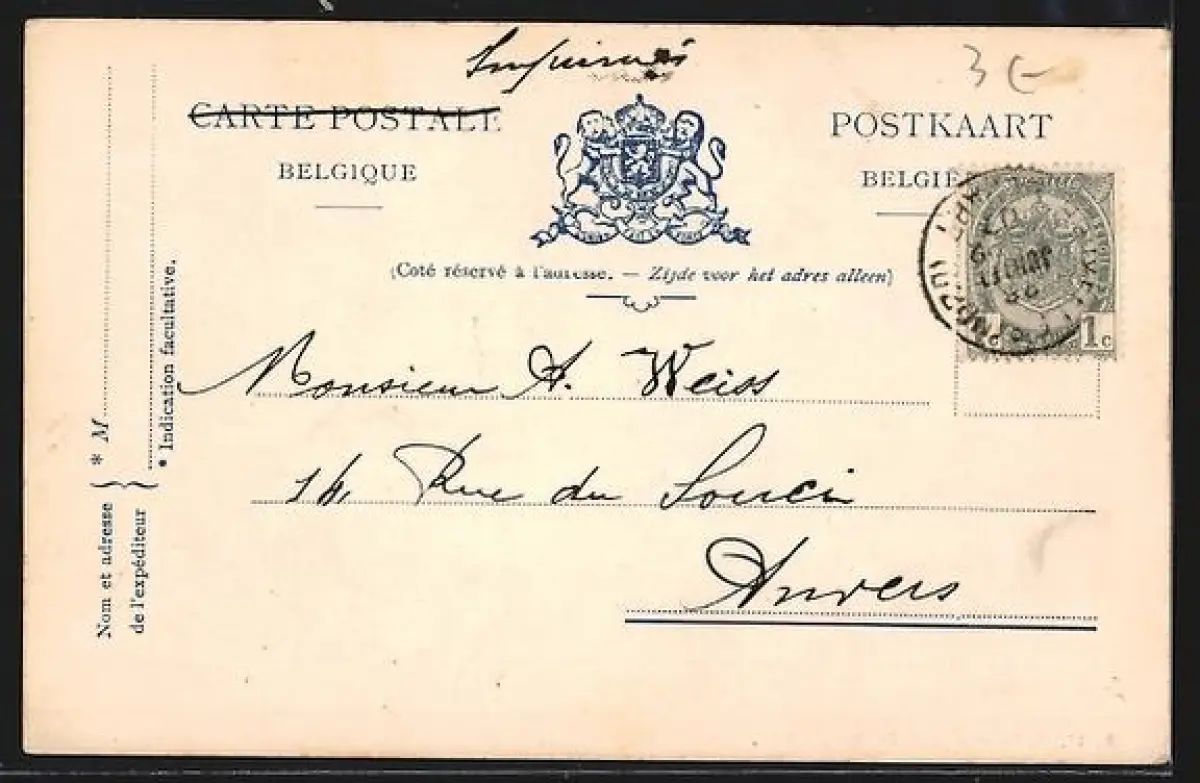 Imprimés
3 €
CARTE POSTALE
POSTKAART
BELGIQUE
BELGIË
1c
(Coté réservé à l'adresse. — Zijde voor het adres alleen)
Monsieur A. Weiss
14, Rue du Souci
Anvers
* M
* Indication facultative.
Nom et adresse
de l'expéditeur